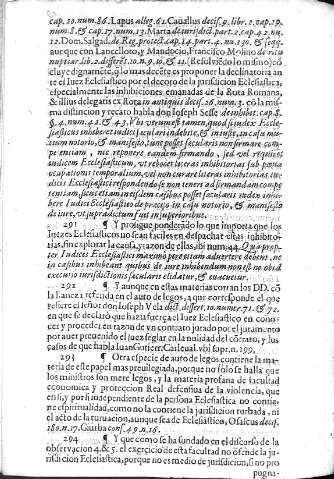 cap. 10. num. 86. Lapus alleg. 61. Cauallus decis. 9. libr. 2. cap. 19.
num. 8. & cap. 17. num. 13. Marta de iurisdict. part. 2. cap. 42. nu.
12. Dom. Salgad. de Reg. protect. cap. 14. part. 4. nu. 130. & seqq.
aunque con Lancelloto, y Mandocio, Francisco Molino de ritu
nuptiar. lib. 2. differẽ. 10. n. 9. 10. & 11. (Resolviẽdo lo mismo) cõ
cluye dignamẽte, q̃ lo mas decẽte es proponer la declinatoria an
te el Iuez Eclesiastico por el decoro de la jurisdicion Eclesiastica,
especialmente las inhibiciones emanadas de la Rota Romana,
& illius delegatis ex Rota in antiquis decis. 26. num. 3. cõ la mis
ma distincion y recato habla don Ioseph Sesse de inhibit. cap. 8.
§. 4. num. 42. & 43. Vbi verum est tamen, quod si iudex Eccle-
siasticus inhiberet iudici seculari indebite, & iniuste, in casu mi-
nùm notorio, & manifesto, tunc posset secularis non firmare com-
petentiam, nec reponere eandem firmando, sed vel requirere
iudicem Ecclesiasticum, vt reuocet literas inhibitorias sub pœna
occupationis temporalium, vel non curare literas inhibitorias iu-
dicis Ecclesiastici respondendo se non teneri ad firmandam compe
tentiam, sicut etiam in eisdem casibus posset secularis iudex inhi-
bere Iudici Ecclesiastico de processo in casu notorio, & manifesto
de iure, vt supra dictum fuit in superioribus.
291 ¶ Y prosigue ponderãdo lo que importa que los
Iuezes Eclesiasticos no sean faciles en despachar estas inhibito-
rias, sin explorar la causa, y razon de ellas, ibi num. 44. Quapro-
pter, Iudices Ecclesiastici maximo pere etiam aduertere debent, ne
in casibus inhibeant quibus de iure inhibendum non est ne ob id
executio iurisdictionis secularis elidatur, & euacuetur.
292 ¶ Y aunque en estas materias corran los DD. cõ
la llaneza referida en el auto de legos, a que corresponde el que
refiere el señor don Ioseph Vela dict. differt. 10. numer. 71. & 72.
en que se declarò que haze fuerça el Iuez Eclesiastico en cono-
cer y proceder en razon de vn contrato jurado por el juramento
por auer preuenido el juez seglar en la nulidad del cõtrato, y los
casos de que habla Iuan Gutierr. Carleual. vbi supr. n. 199.
293 ¶ Otra especie de auto de legos contiene la ma-
teria de este papel mas preuilegiada, porque no solo se halla que
los ministros son mere legos, y la materia profana de facultad
economica y proteccion Real defensiua de la violencia, que
en si, y por si independente de la persona Eclesiastica no contie
ne espiritualidad, como no la contiene la jurisdicion turbada, ni
el acto de la turuacion, aunque sea de Eclesiastico, Osascus decis.
180. n. 17. Giurba cons. 49. n. 16.
294 ¶ Y que como se ha fundado en el discurso de la
obseruacion 4. & 5. el exercicio de esta facultad no ofende la ju-
risdicion Eclesiastica, porque no es medio de jurisdicion, sino pro
pugna-